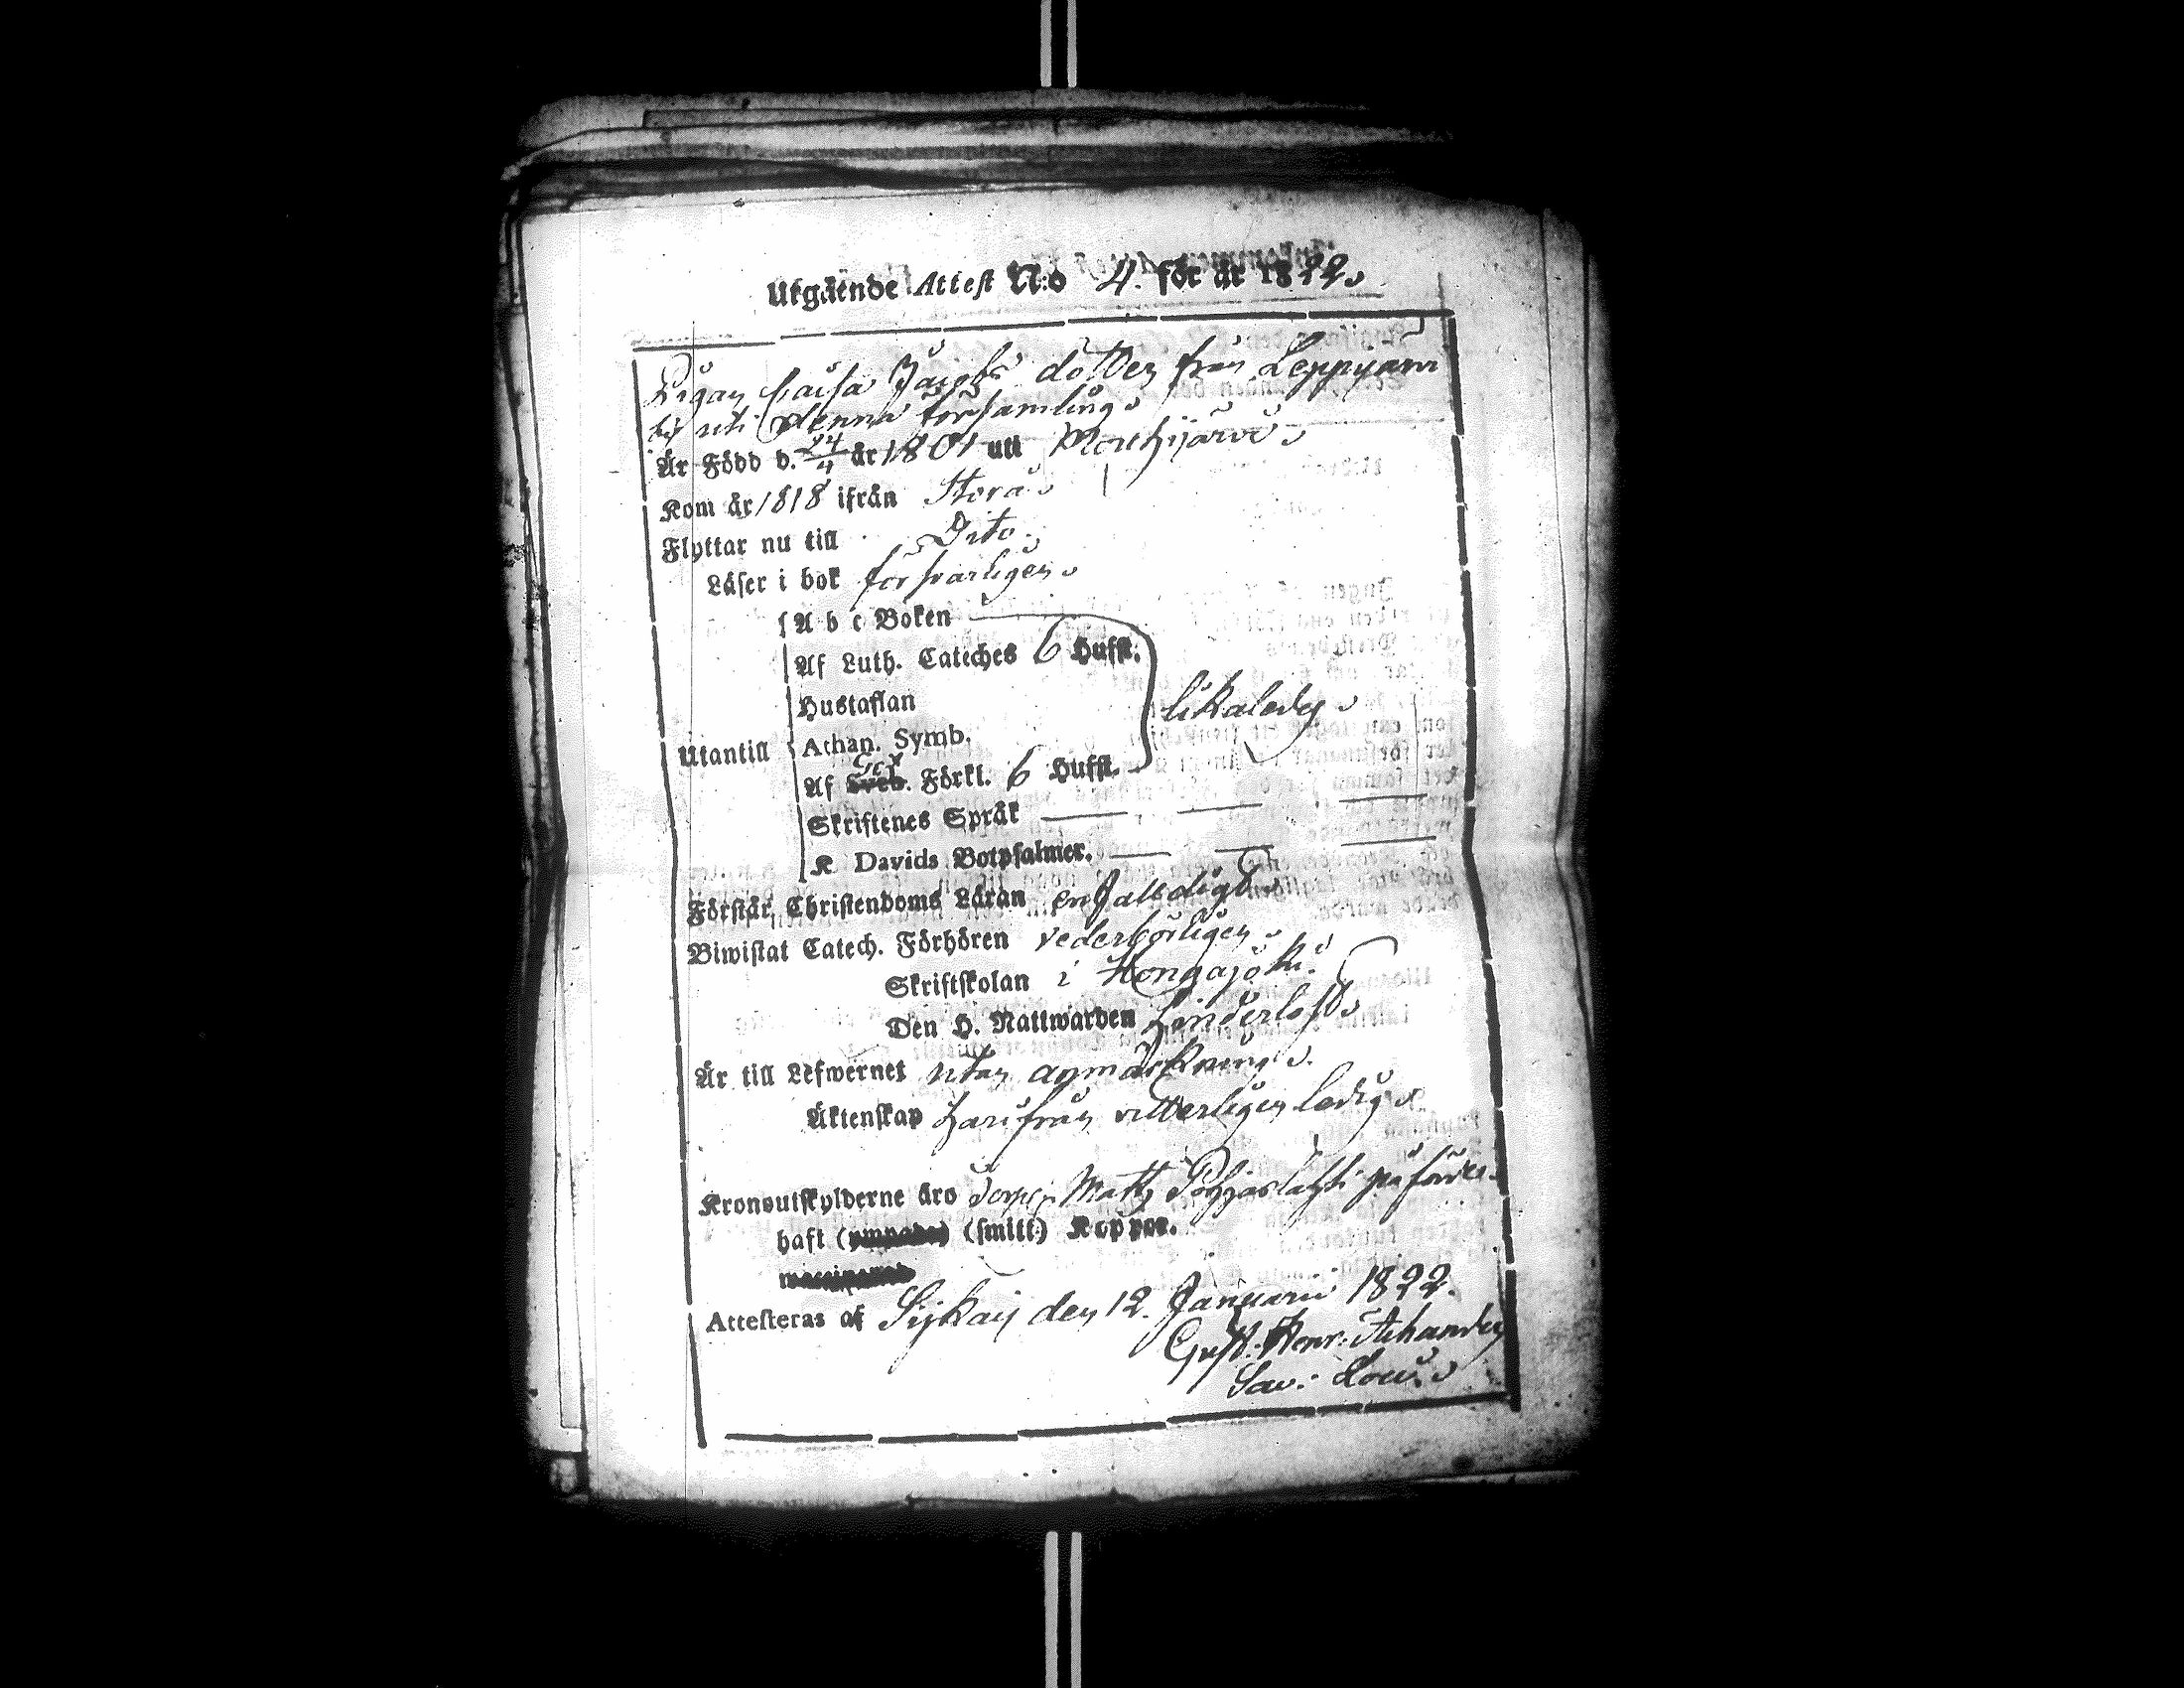 Utgående Attest N:o 4. för år 1822.
Pigan Caisa Jacobs dotter från Leppijarvi
by uti denna församling
Är Född d. 24/4 år 1801 uti Mouhijärvi
Kom år 1818 ifrån Stora
Flyttar nu till Dito.
Läser i bok försvarligen
A b c Boken
Af Luth. Cateches 6 Hufst.
Hustaflan
likaledes
Utantill
Athan. Symb.
Af Förkl. 6 Hufst.
Skriftenes Språk
K Davids Botpsalmer.
Förstår Christendoms Läran enfalldigt
Biwistat Catech. Förhören vederbörligen
Skriftskolan i Hongajoki
Den H. Nattwarden
Är till Lefwernet utan anmärkning.
Äktenskap härifrån vitterligen ledig
Kronoutskylderne äro Matts på
haft (smitt) Koppor.
Attesteras af den 12. Januarii 1822.
Gust. Henr.